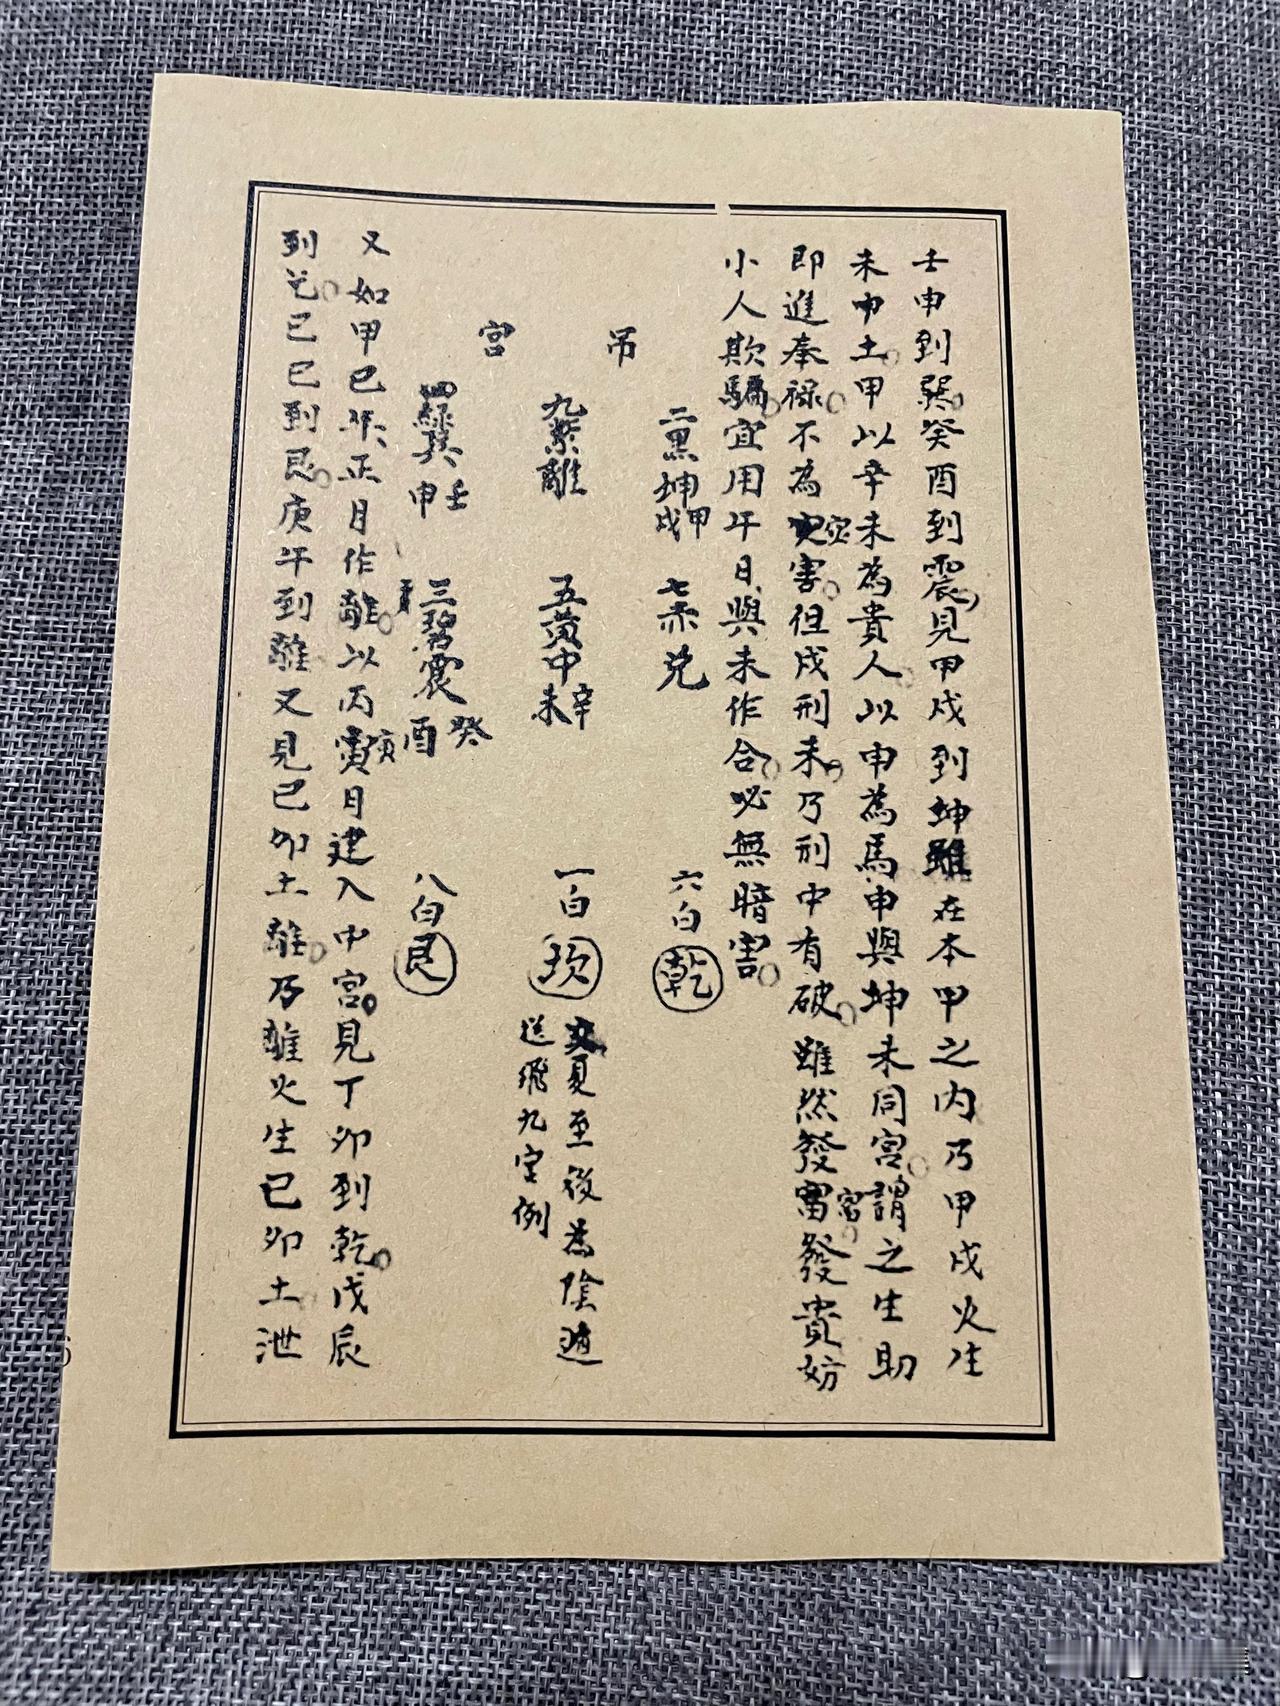 壬申到巽。癸酉到震，見甲戌到坤雖在本甲之內乃甲戌火生
未申土。甲以辛未為貴人。以申為馬申與坤未同宮。謂之生助
即進奉祿。不為災害。但戌刑未。乃刑中有破。雖然發富發貴妨
小人欺騙。宜用午日與未作合。必無暗害。
吊
二黑坤 甲戌
七赤兌
六白乾
九紫離
五黃中 辛未
一白坎
夏至後為陰遁
逆飛九宮例
宮
四綠巽 壬申
三碧震 癸酉
八白艮
又如甲己年正月作離。以丙寅日建入中宮。見丁卯到乾。戊辰
到兌。己巳到艮。庚午到離又見己卯土離。乃離火生己卯土泄